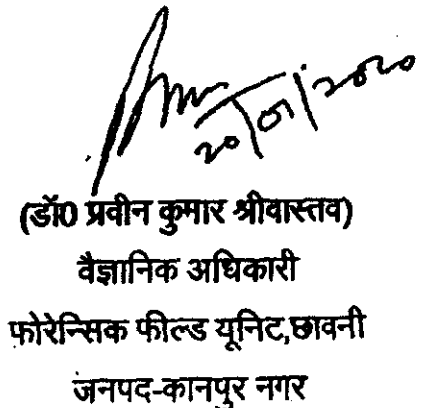 20/01/2020
(डॉ0 प्रवीन कुमार श्रीवास्तव)
वैज्ञानिक अधिकारी
फोरेन्सिक फील्ड यूनिट,छावनी
जनपद-कानपुर नगर